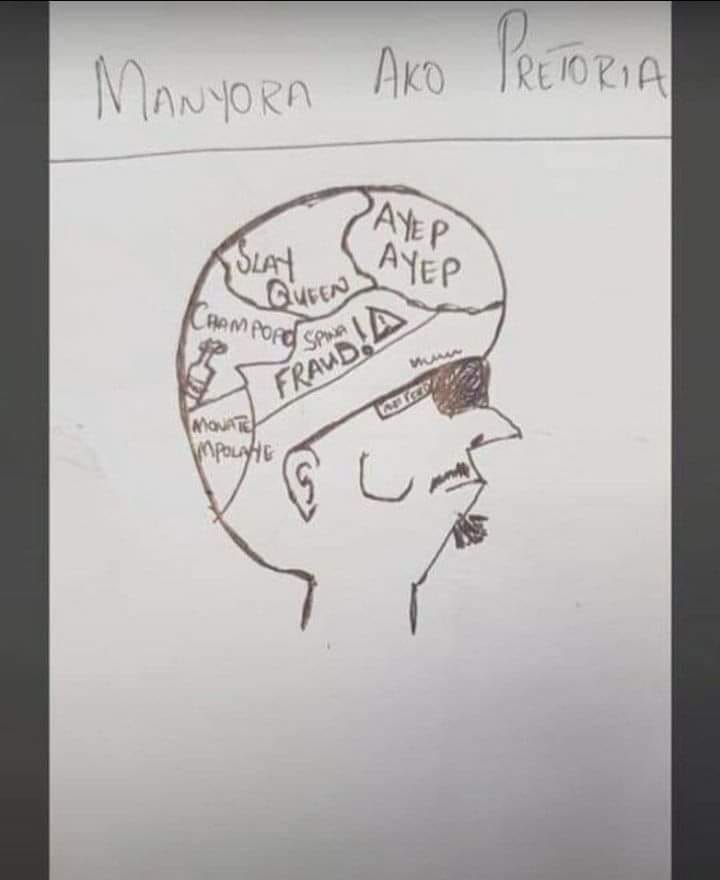 MANYORA AKO PRETORIA
AYEP
AYEP
SLAY
QUEEN
CHAMPOPO
SPINA
FRAUD!
MONATE
MPOLAYE